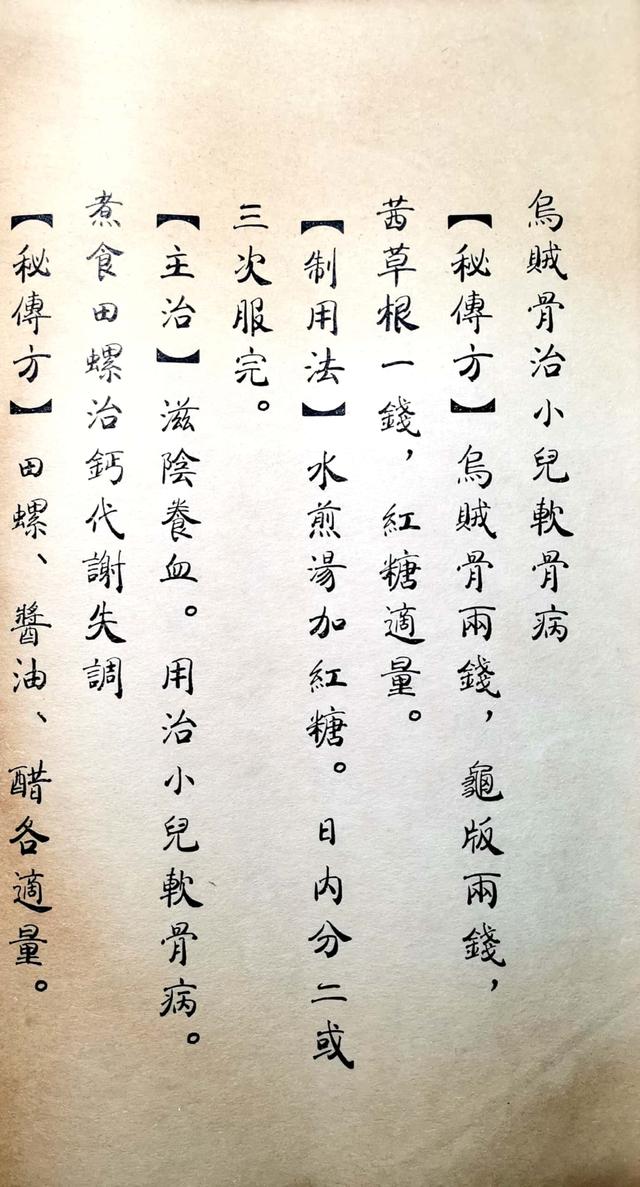 烏賊骨治小兒軟骨病
【秘傳方】烏賊骨兩錢，龜版兩錢，
茜草根一錢，紅糖適量。
【制用法】水煎湯加紅糖。日内分二或
三次服完。
【主治】滋陰養血。用治小兒軟骨病。
煮食田螺治鈣代謝失調
【秘傳方】田螺、醬油、醋各適量。